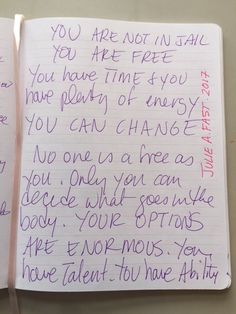 YOU ARE NOT IN JAIL
YOU ARE FREE
You have TIME & you
have plenty of energy
YOU CAN CHANGE
No one is a free as
you. Only you can
decide what goes in the
body. YOUR OPTIONS
ARE ENORMOUS. You
have Talent. You have Ability
JULIE A. FAST 2017